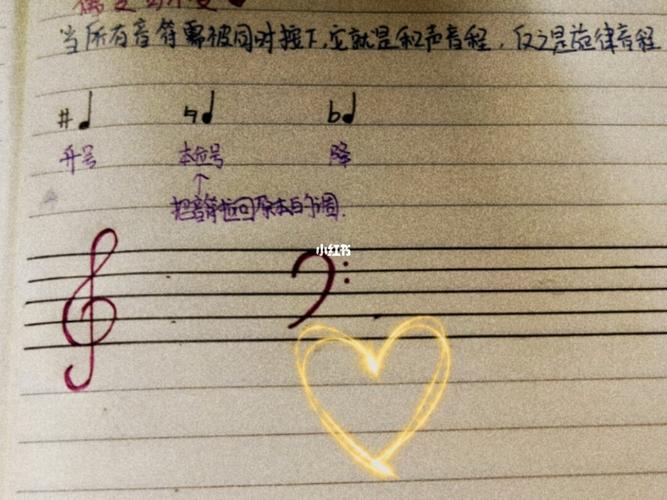 当所有音符需被同时按下,它就是和声音程,反之是旋律音程
# ♮ b
升号 本位号 降
↑
把音符拉回原本的音调.
小红书